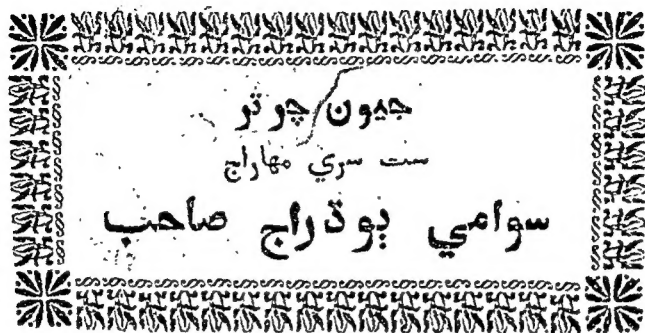 جيون چرتر
ست سري مهاراج
سوامي ٻوڌراج صاحب